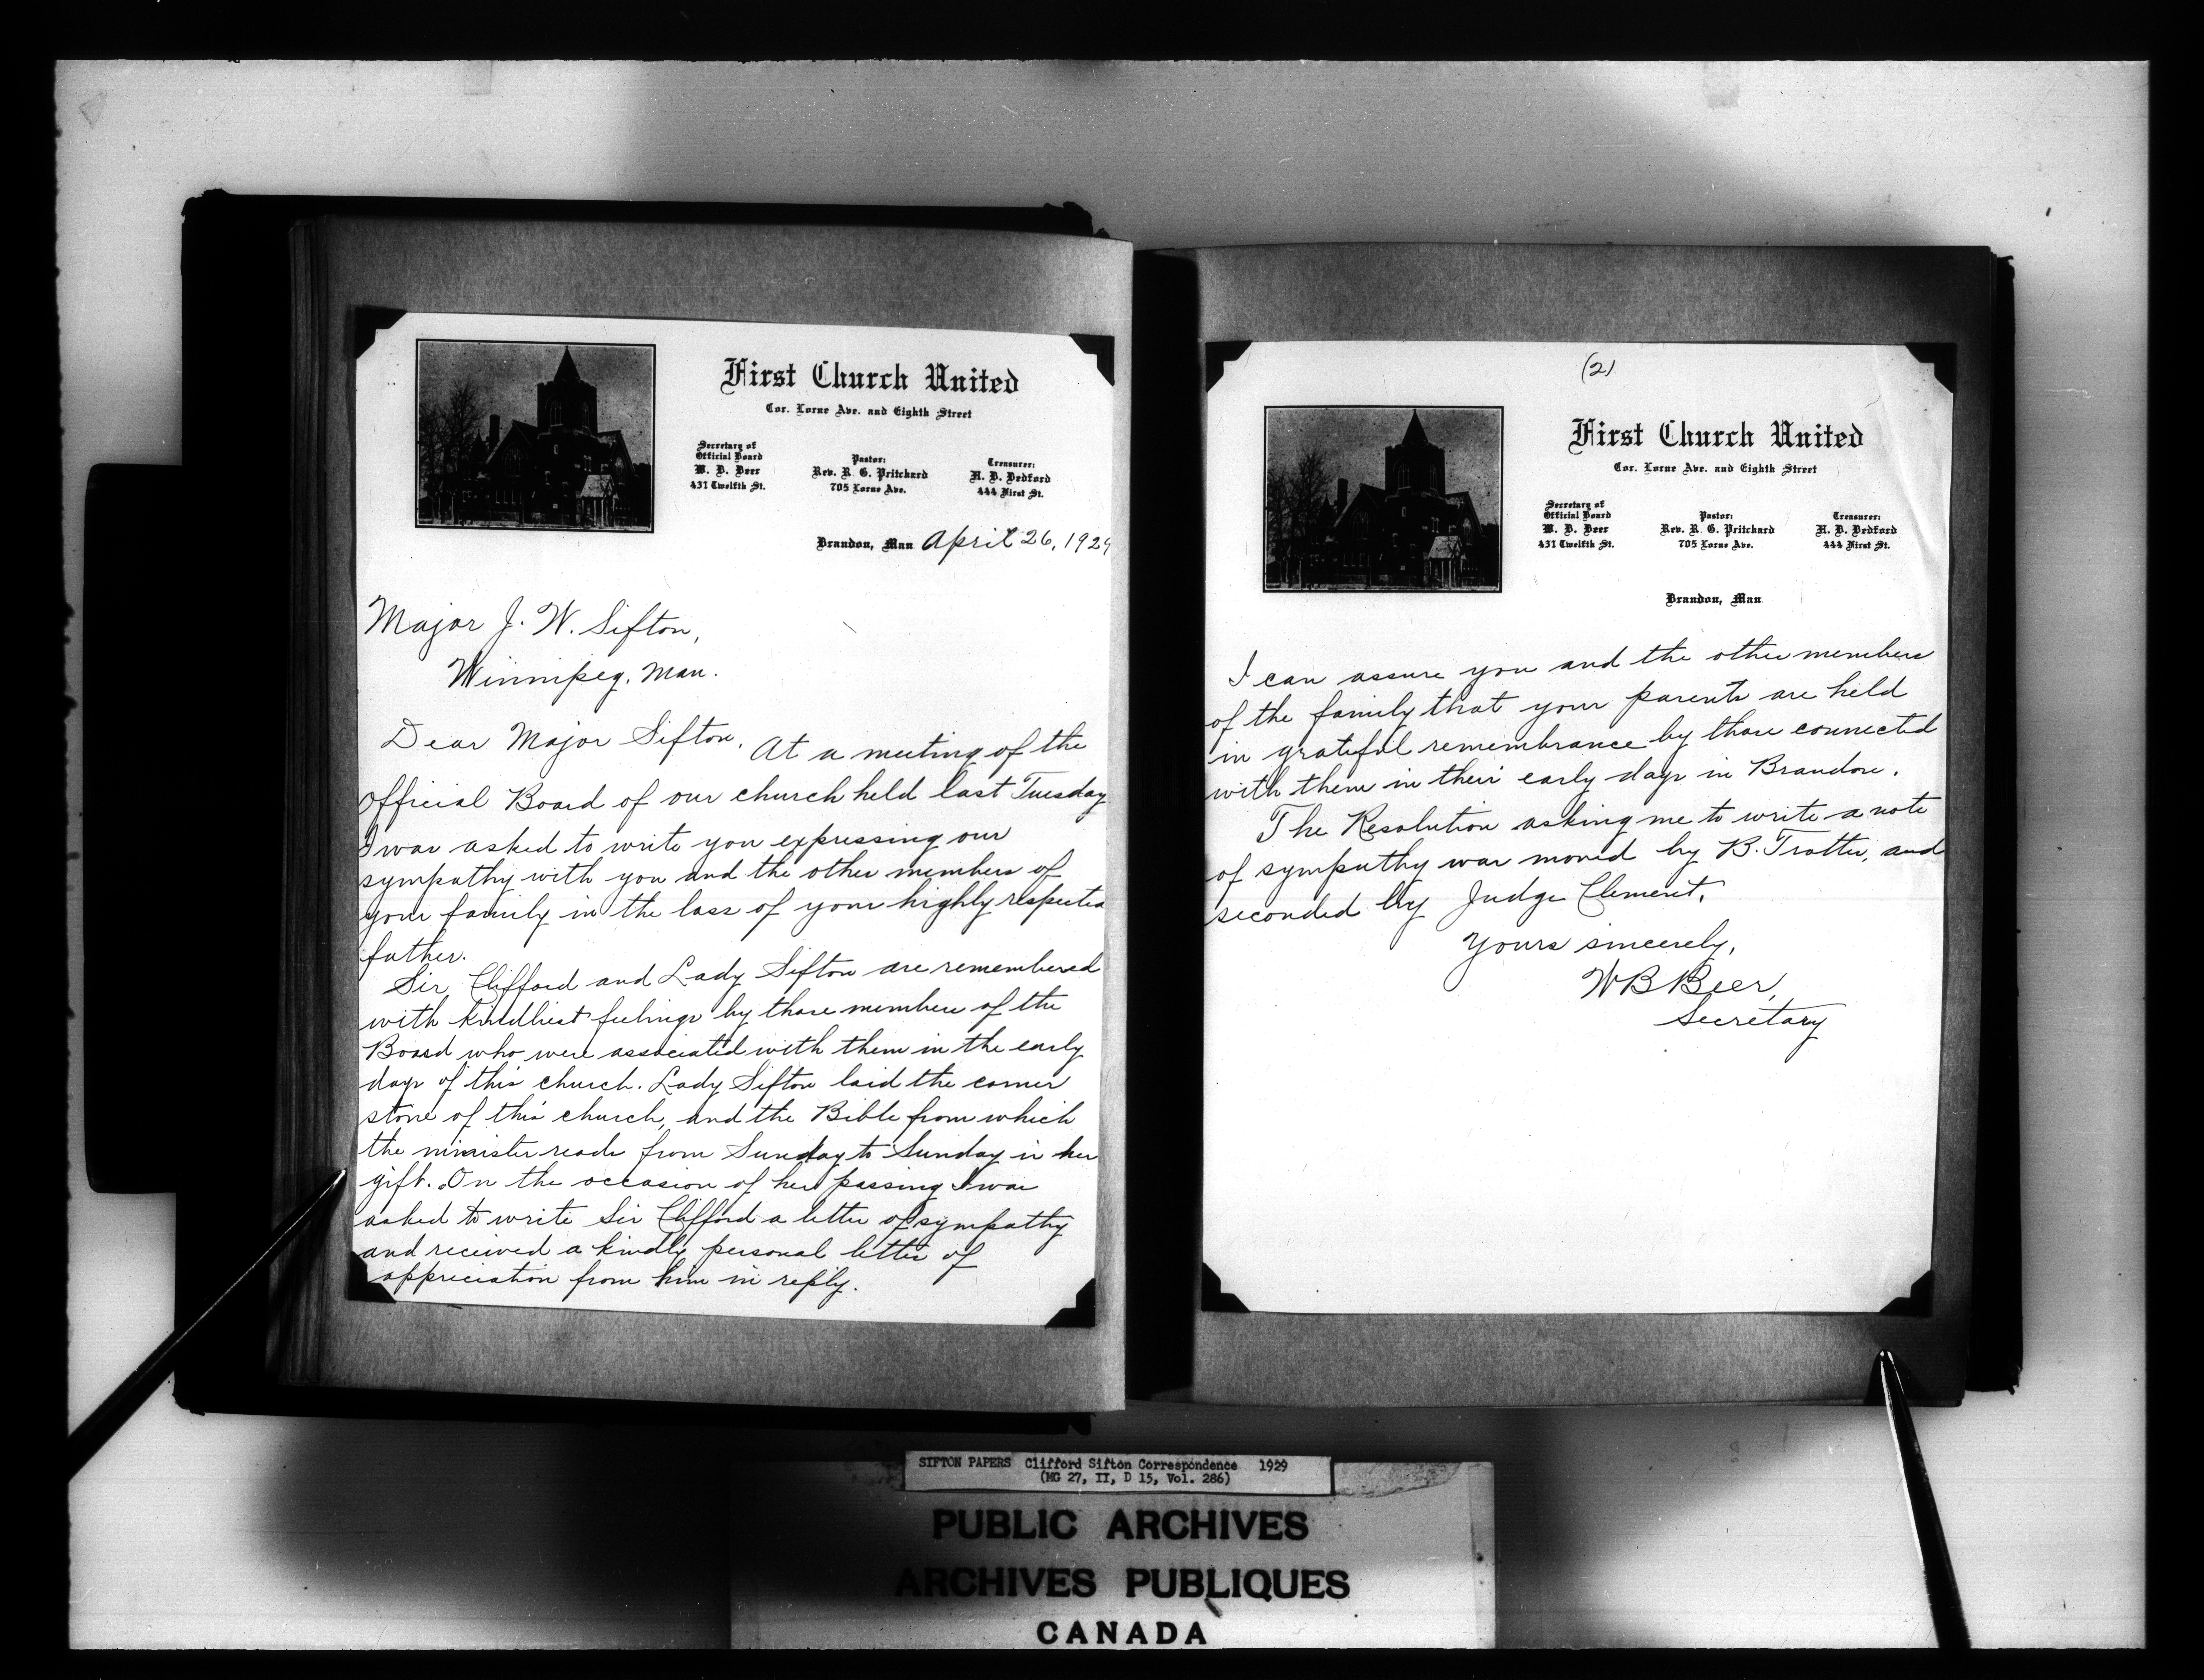 First Church United
Cor. Lorne Ave. and Eighth Street
Secretary of
Official Board
W. B. Beer
431 Twelfth St.
Pastor:
Rev. R. G. Pritchard
705 Lorne Ave.
Treasurer:
H. B. Bedford
444 First St.
Brandon, Man April 26, 1929
Major J. W. Sifton,
Winnipeg, Man.
Dear Major Sifton, At a meeting of the
official Board of our church held last Tuesday
I was asked to write you expressing our
sympathy with you and the other members of
your family in the loss of your highly respected
father.
Sir Clifford and Lady Sifton are remembered
with kindliest feelings by those members of the
Board who were associated with them in the early
days of this church. Lady Sifton laid the corner
stone of this church, and the Bible from which
the minister reads from Sunday to Sunday is her
gift. On the occasion of her passing I was
asked to write Sir Clifford a letter of sympathy
and received a kindly personal letter of
appreciation from him in reply.
(2)
First Church United
Cor. Lorne Ave. and Eighth Street
Secretary of
Official Board
W. B. Beer
431 Twelfth St.
Pastor:
Rev. R. G. Pritchard
705 Lorne Ave.
Treasurer:
H. B. Bedford
444 First St.
Brandon, Man
I can assure you and the other members
of the family that your parents are held
in grateful remembrance by those connected
with them in their early days in Brandon.
The Resolution asking me to write a note
of sympathy was moved by B. Trotter, and
seconded by Judge Clement.
Yours sincerely,
W B Beer,
Secretary
SIFTON PAPERS Clifford Sifton Correspondence 1929
(MG 27, II, D 15, Vol. 286)
PUBLIC ARCHIVES
ARCHIVES PUBLIQUES
CANADA